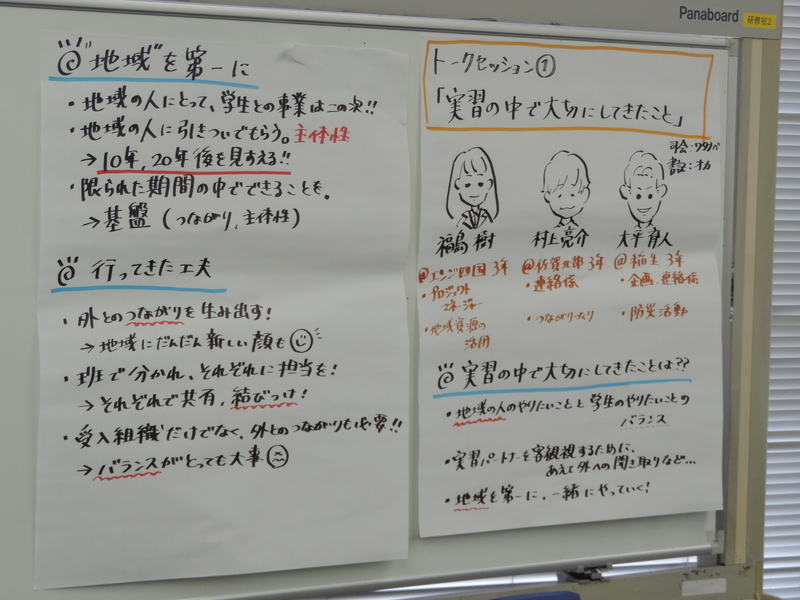 Panaboard
研修室2
"地域"を第一に
・地域の人にとって、学生との事業はこの次!!
・地域の人に引きついでもらう。主体性
→10年,20年後を見すえる!!
・限られた期間の中でできることを。
→基盤(つながり,主体性)
行ってきた工夫
・外とのつながりを生み出す!
→地域にだんだん新しい顔も
・班で分かれ、それぞれに担当を!
→それぞれで共有,結びつけ!
・受入組織だけでなく、外とのつながりも必要!!
→バランスがとっても大事
トークセッション①
「実習の中で大切にしてきたこと」
司会:ワタナベ
書:オカ
福島 樹
村上亮介
大平育人
@エンジ四国 3年
・プロジェクト
マネジャー
・地域資源の
活用
@佐賀北部 3年
・連絡係
・つながりづくり
@稲生 3年
・企画,連絡係
・防災活動
実習の中で大切にしてきたことは??
・地域の人のやりたいことと学生のやりたいことの
バランス
・実習パートナーを客観視するために、
あえて外への聞き取りなど…
・地域を第一に、一緒にやっていく!